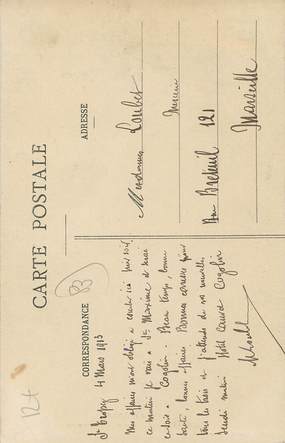 CARTE POSTALE
CORRESPONDANCE
ADRESSE
83
12+
St Tropez 4 Mars 1913
Mes affaires m'ont obligé à coucher ici hier soir,
ce matin je vais à Ste Maxime et
ce soir à Cogolin. Beau temps, bonne
santé, bonnes affaires. Bonnes caresses pour
tous les trois et j'attends de vos nouvelles
Jeudi matin Hôtel Cogolin
Madame Loubet
Mercerie
Rue Breteuil 121
Marseille